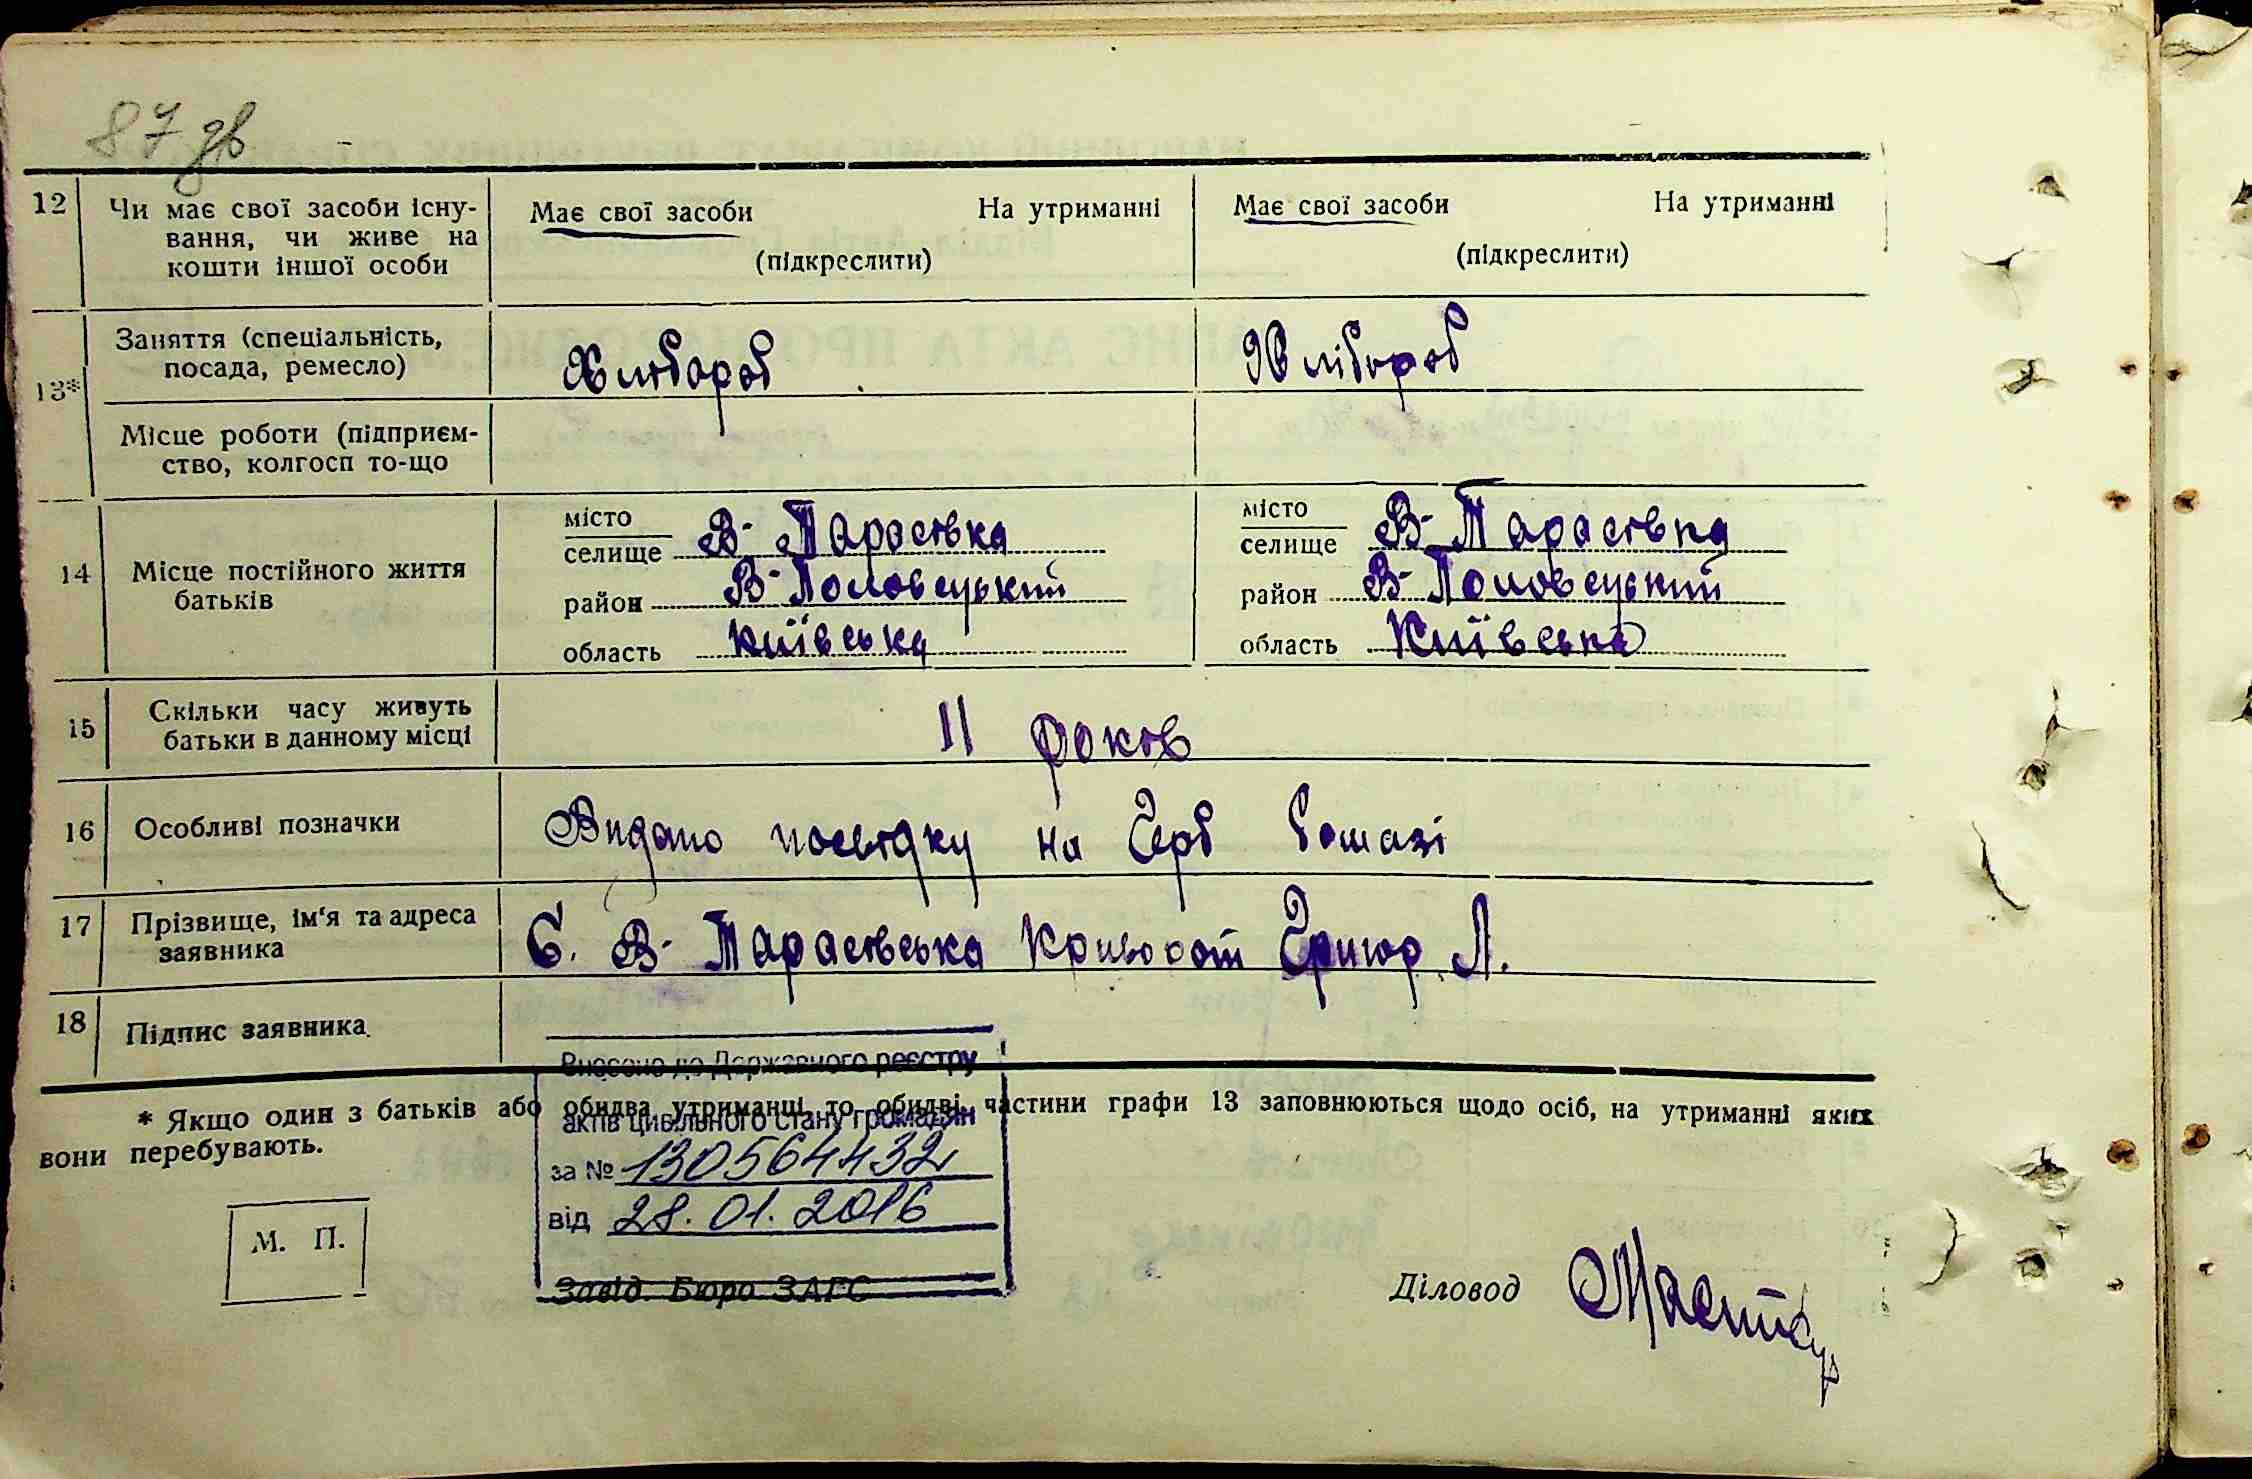 87 зв
12 Чи має свої засоби існу- Має свої засоби На утриманні Має свої засоби На утриманні
вання, чи живе на
кошти іншої особи (підкреслити) (підкреслити)
13* Заняття (спеціальність,
посада, ремесло) Хлібороб Хлібороб
Місце роботи (підприєм-
ство, колгосп то-що
14 Місце постійного життя
батьків
місто
селище В-Тарасівка
район В-Половецький
область Київська
місто
селище В-Тарасівка
район В-Половецький
область Київська
15 Скільки часу живуть
батьки в данному місці 11 років
16 Особливі позначки Видано посвідку на Герб
17 Прізвище, ім'я та адреса
заявника С. В-Тарасівська Кривохат Григор Л.
18 Підпис заявника
Внесено до Державного реєстру
актів цивільного стану громадян
за № 130564432
від 28.01.2016
* Якщо один з батьків або обидва утриманці то обидві частини графи 13 заповнюються щодо осіб, на утриманні яких
вони перебувають.
М. П.
Завід. Бюро ЗАГС
Діловод